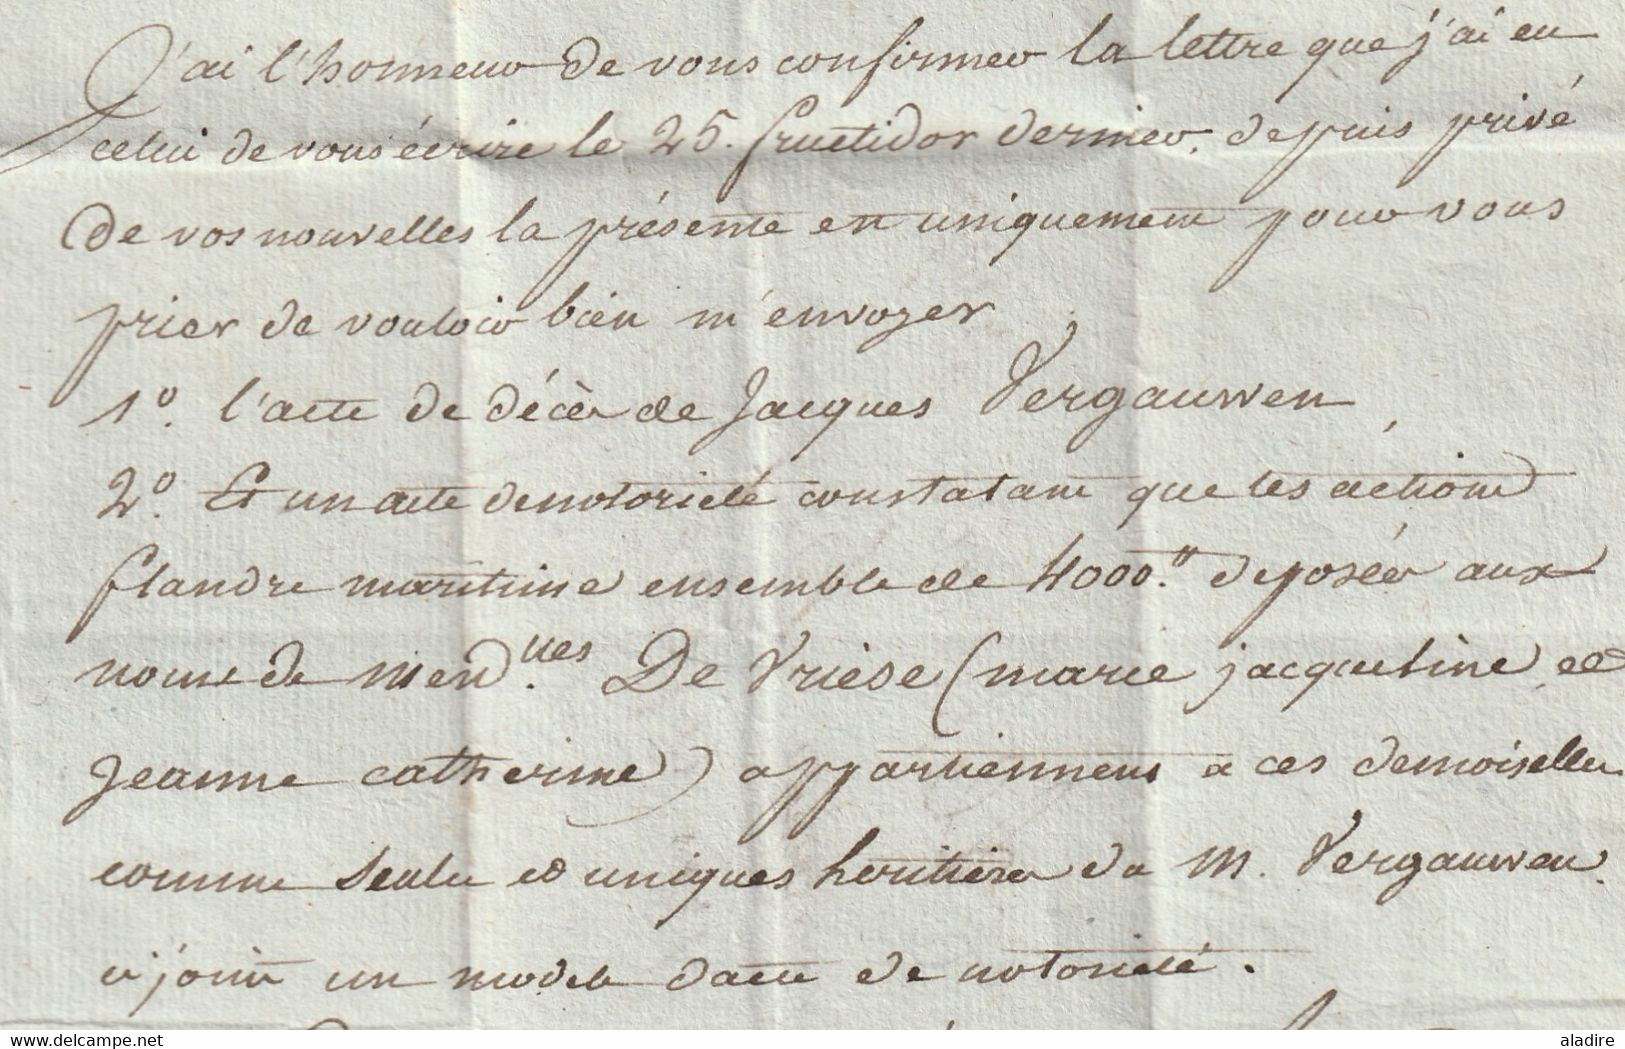 J'ai l'honneur de vous confirmer la lettre que j'ai eu
celui de vous écrire le 25. fructidor dernier, depuis privé
de vos nouvelles la présente est uniquement pour vous
prier de vouloir bien m'envoyer
1.º l'acte de décès de Jacques Vergauwen,
2.º Et un acte de notorieté constatant que les actions
flandre maritime ensemble de 4000.# deposées aux
noms de mesd.lles De Vriese (marie jacqueline, et
Jeanne catherine) appartiennent a ces demoiselles
comme seules et uniques heritieres du M. Vergauwen.
cy joint un modele dacte de notorieté.
delcampe.net
aladire